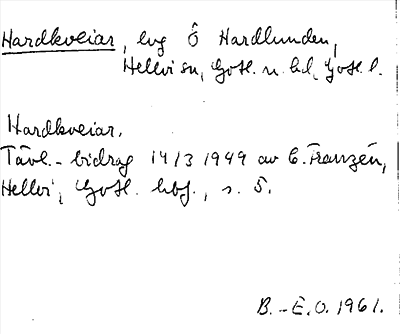 Hardkveiar, lvg Ö Hardlunden,
Hellvi sn, Gotl. n. hd, Gotl. l.
Hardkveiar.
Tävl.-bidrag 14/3 1949 av E. Franzén,
Hellvi, Gotl. hbf., s. 5.
B.-E.O. 1961.